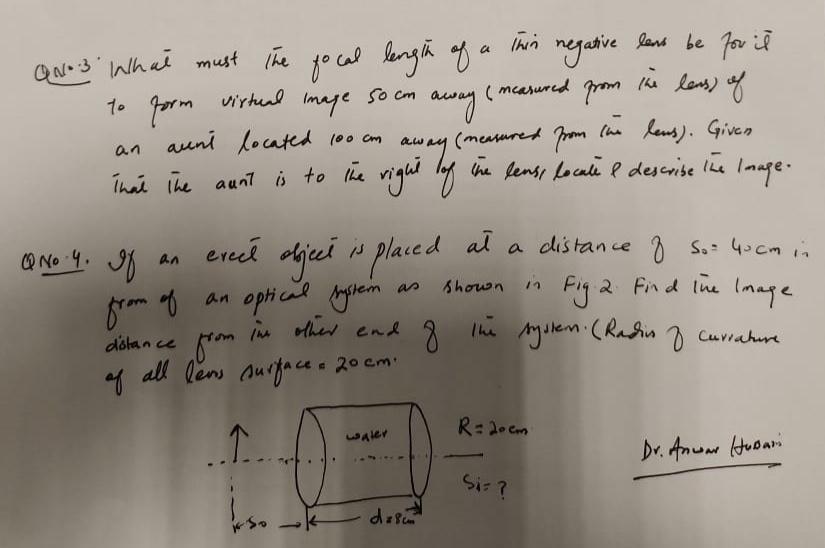 Q No.3 What must the focal length of a thin negative lens be for it
to form virtual image 50 cm away (measured from the lens) of
an aunt located 100 cm away (measured from the lens). Given
that the aunt is to the right of the lens, locate & describe the Image.
Q No.4. If an erect object is placed at a distance of So = 40 cm in
from of an optical system as shown in Fig 2. Find the Image
distance from the other end of the system. (Radius of curvature
of all lens surface = 20 cm.
water
R = 20 cm
Si = ?
So
d = 8cm
Dr. Anwar